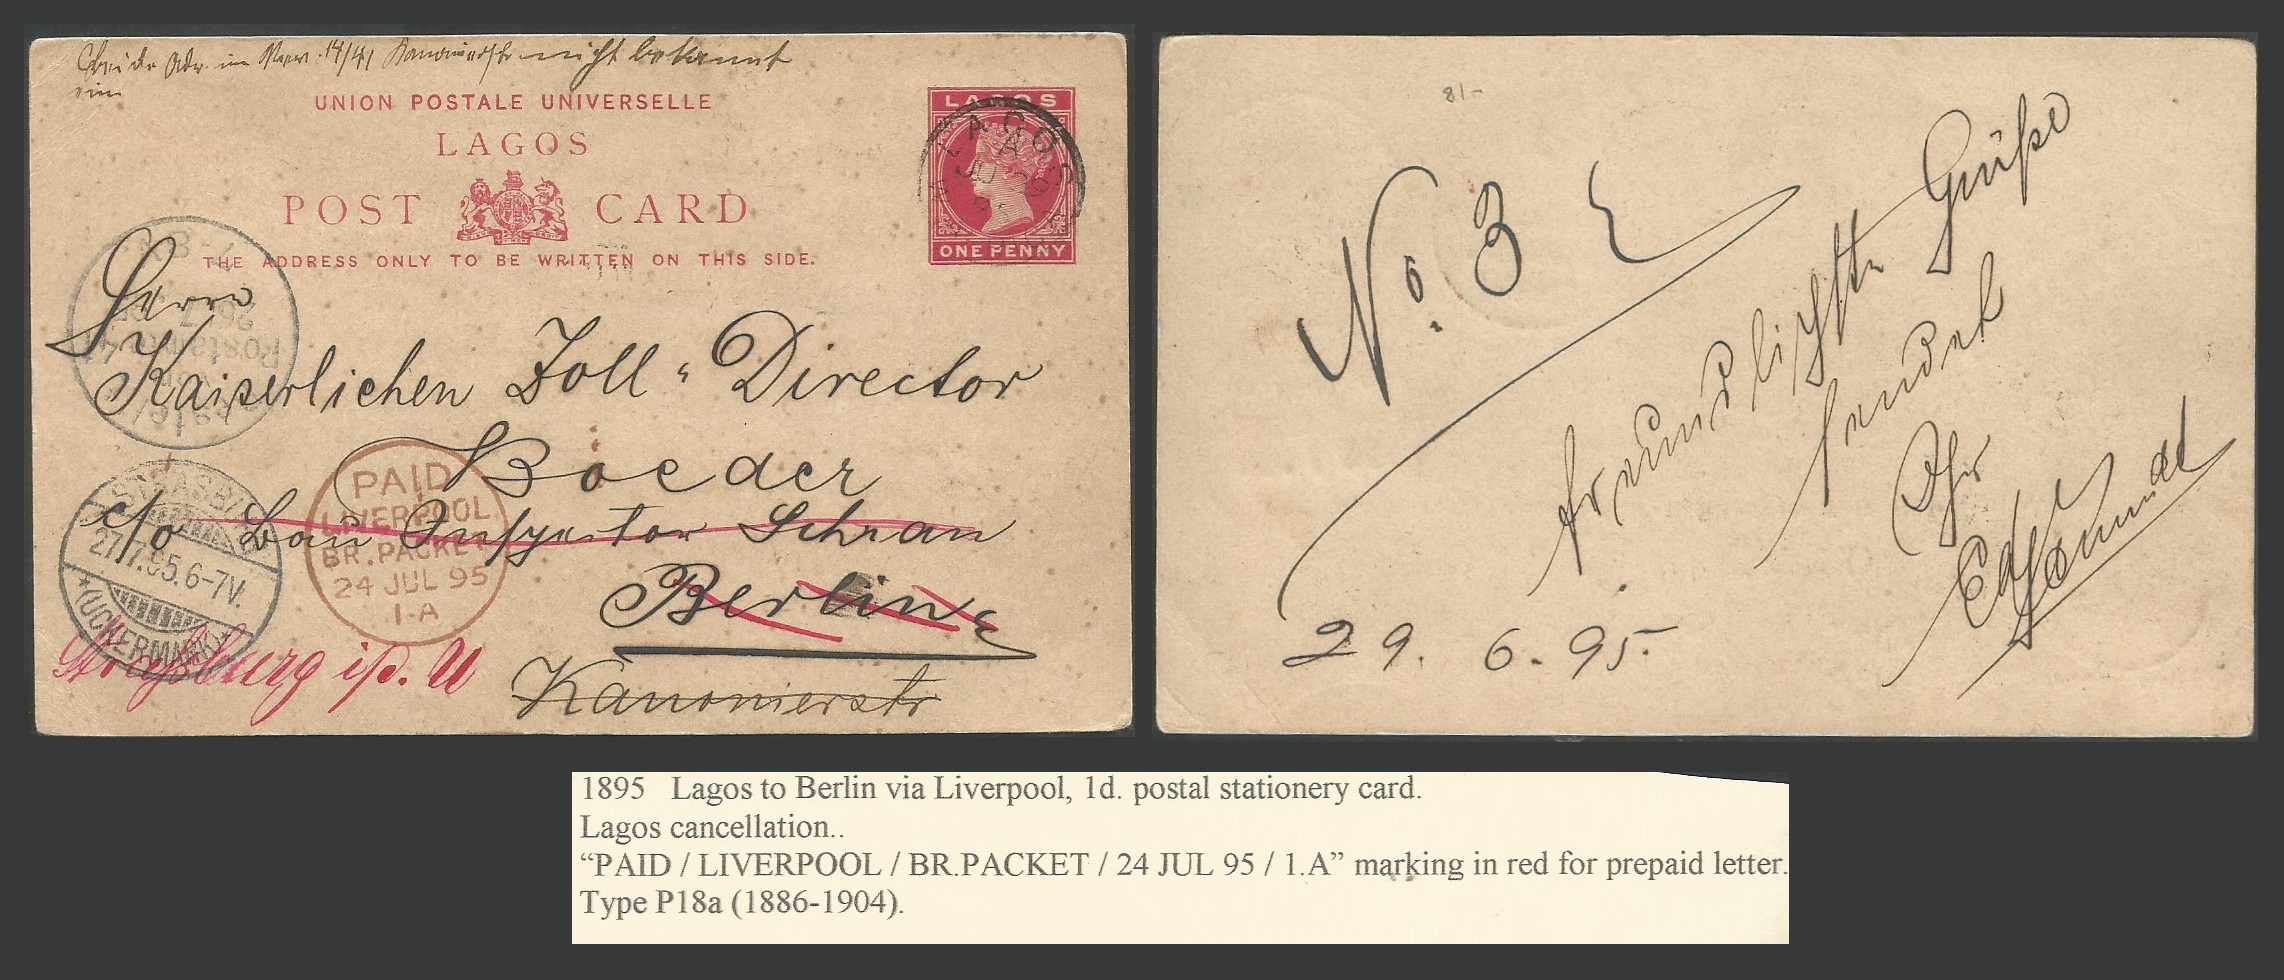 nicht bekannt
UNION POSTALE UNIVERSELLE
LAGOS
POST CARD
THE ADDRESS ONLY TO BE WRITTEN ON THIS SIDE.
LAGOS
ONE PENNY
LAGOS
A
Herrn
Kaiserlichen Zoll-Director
Boeder
c/o Bau Inspector Schran
Berlin
Kanonierstr
Straßburg i/p. U
PAID
LIVERPOOL
BR. PACKET
24 JUL 95
1-A
STRASBURG
27.7.95.6-7V.
*(UCKERMARK)*
26/7
Postamt
81-
No. 3
freundlichste Grüße
sendet
Ihr
Ed Schmidt
29. 6. 95.
1895 Lagos to Berlin via Liverpool, 1d. postal stationery card.
Lagos cancellation..
“PAID / LIVERPOOL / BR.PACKET / 24 JUL 95 / 1.A” marking in red for prepaid letter.
Type P18a (1886-1904).